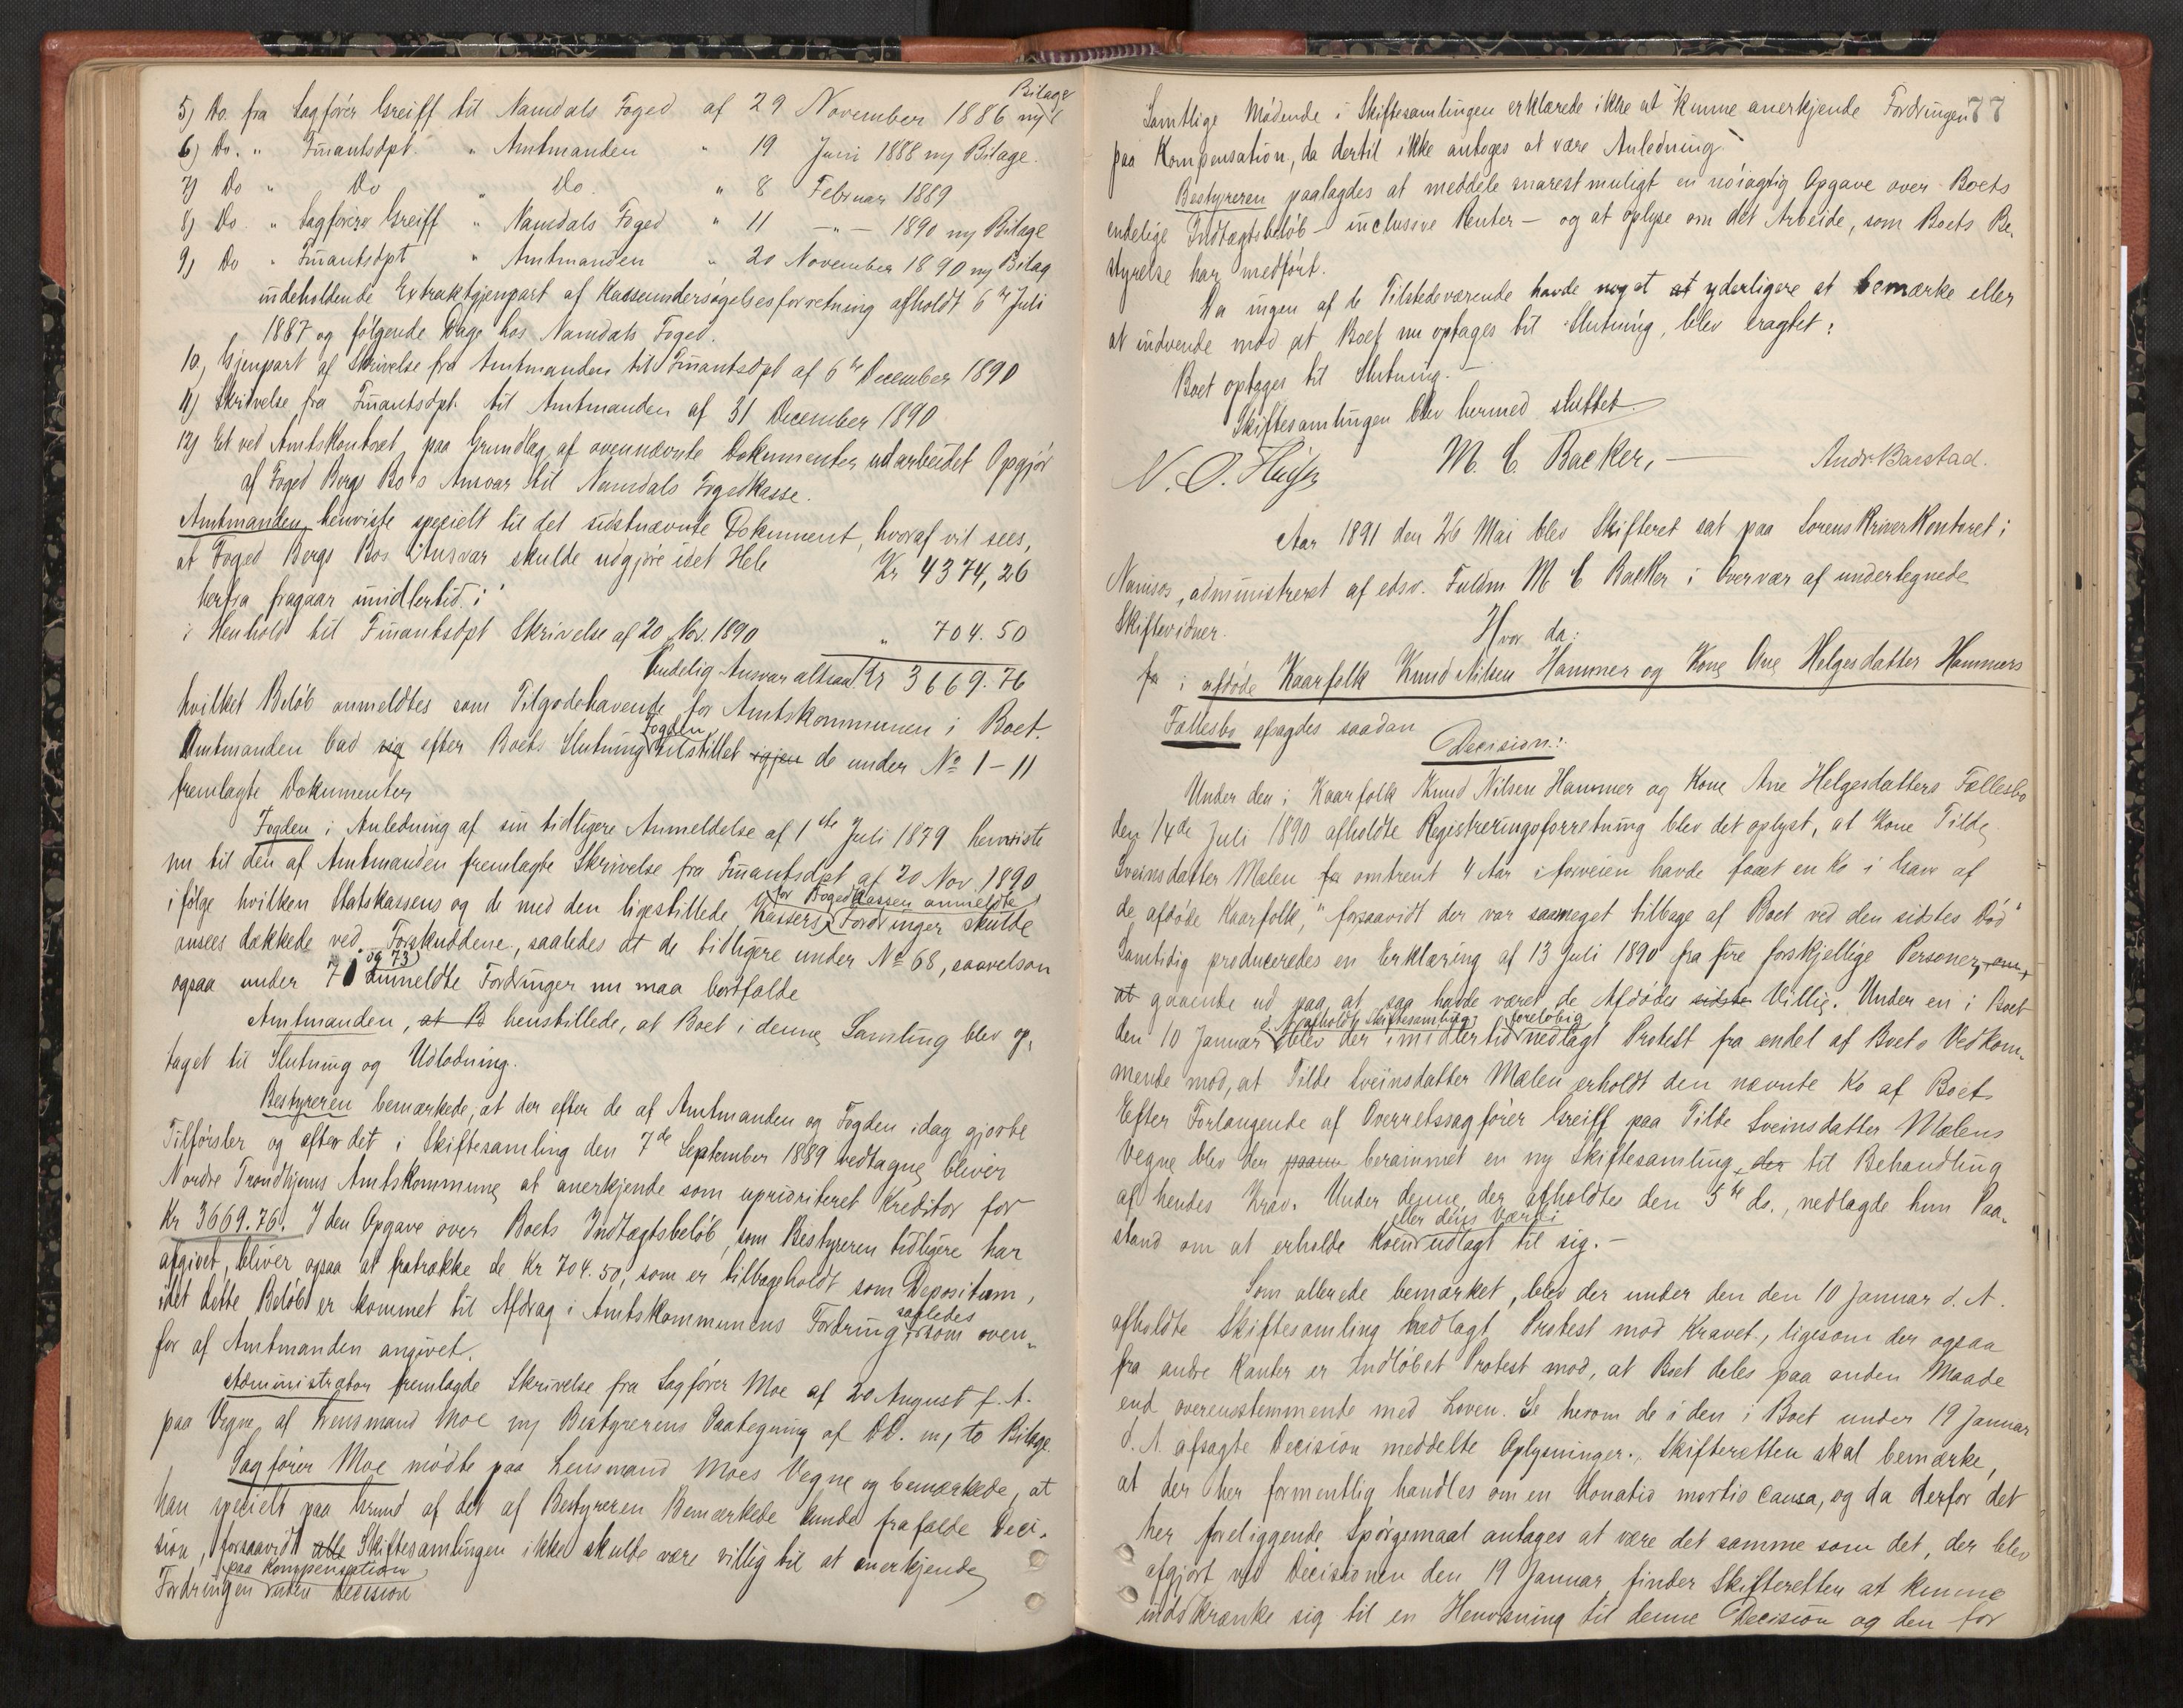 Bilage
5) Do. fra Sagfører Greiff til Namdals Foged af 29 November 1886
6) Do. " Finantsdpt. " Amtmanden " 19 Juni 1888 m/ Bilage.
7) Do " Do " Do. " 8 Februar 1889
8) Do. " Sagfører Greiff " Namdals Foged " 11 —"— 1890 m/ Bilage
9) Do " Finantsdpt " Amtmanden " 20 November 1890 m/ Bilag
indeholdende Extraktgjenpart af Kasseundersøgelsesforretning afholdt 6te Juli
1887 og følgende Dage hos Namdals Foged.
10) Gjenpart af Skrivelse fra Amtmanden til Finantsdpt af 6te December 1890
11) Skrivelse fra Finantsdpt. til Amtmanden af 31 December 1890
12) Et ved Amtskontoret paa Grundlag af ovennævnte Dokumenter udarbeidet Opgjør
af Foged Bergs Bo's Ansvar til Namdals Fogedkasse.
Amtmanden henviste specielt til det sidstnævnte Dokument, hvoraf vil sees,
at Foged Bergs Bos Ansvar skulde udgjøre idet Hele Kr 4374,26
herfra fragaar imidlertid i
i Henhold til Finantsdpt Skrivelse af 20 Nov. 1890 " 704.50
Endelig Ansvar altsaa Kr 3669.76
hvilket Beløb anmeldtes som Tilgodehavende for Amtskommunen i Boet.
Amtmanden bad sig efter Boets Slutning Fogden tilstillet igjen de under No 1-11
fremlagte Dokumenter
Fogden i Anledning af sin tidligere Anmeldelse af 1ste Juli 1879 henviste
nu til den af Amtmanden fremlagte Skrivelse fra Finantsdpt af 20 Nov. 1890
ifølge hvilken Statskassens og de med den ligestillede Kassers for Fogedkassen anmeldte Fordringer skulde
ansees dækkede ved Forskuddene, saaledes at de tidligere under No 68, saavelsom
ogsaa under 71 og 73 anmeldte Fordringer nu maa bortfalde
Amtmanden, at B henstillede, at Boet i denne Samling blev op-
taget til Slutning og Udlodning.
Bestyreren bemærkede, at der efter de af Amtmanden og Fogden idag gjorte
Tilførsler og efter det i Skiftesamling den 7de September 1889 vedtagne bliver
Nordre Trondhjems Amtskommune at anerkjende som uprioriteret Kreditor for
Kr 3669.76. I den Opgave over Boets Indtægtsbeløb, som Bestyreren tidligere har
afgivet, bliver ogsaa at fratrække de Kr 704.50, som er tilbageholdt som Depositum,
idet dette Beløb er kommet til Afdrag i Amtskommunens Fordring saaledes som oven-
for af Amtmanden angivet.
Administrator fremlagde Skrivelse fra Sagfører Moe af 20 August f. A.
paa Vegne af Lensmand Moe m/ Bestyrerens Paategning af DD. m/ to Bilage.
Sagfører Moe mødte paa Lensmand Moes Vegne og bemærkede, at
han specielt paa Grund af det af Bestyreren Bemærkede kunde frafalde Deci-
sion, forsaavidt alle Skiftesamlingen ikke skulde være villig til at anerkjende
Fordringen paa Kompensation uden Decision
77
Samtlige Mødende i Skiftesamlingen erklærede ikke at kunne anerkjende Fordringen
paa Kompensation, da dertil ikke antoges at være Anledning.
Bestyreren paalagdes at meddele snarest muligt en nøiagtig Opgave over Boets
endelige Indtægtsbeløb – inclusive Renter – og at oplyse om det Arbeide, som Boets Be-
styrelse har medført.
Da ingen af de Tilstedeværende havde noget at yderligere at bemærke eller
at indvende mod at Boet nu optages til Slutning, blev eragtet:
Boet optages til Slutning. –
Skiftesamlingen blev hermed sluttet.
M. C. Backer, — Andr. Barstad.
Aar 1891 den 26 Mai blev Skifteret sat paa SorenskriverKontoret i
Namsos, administreret af edsv. Fuldm M C Backer i Overvær af undertegnede
Skiftevidner.
Hvor da:
fa i afdøde Kaarfolk Knud Nilsen Hammer og Kone Ane Helgesdatter Hammers
Fællesbo afsagdes saadan
Decision:
Under den i Kaarfolk Knud Nilsen Hammer og Kone Ane Helgesdatters Fællesbo
den 14de Juli 1890 afholdte Registreringsforretning blev det oplyst, at Kone Tilde
Sveinsdatter Mælen fa omtrent 4 Aar iforveien havde faaet en Ko i Gave af
de afdøde Kaarfolk, "forsaavidt der var saameget tilbage af Boet ved den sidstes Død"
Samtidig produceredes en Erklæring af 13 Juli 1890 fra fire forskjellige Personer, om,
at gaaende ud paa, at saa havde været de Afdødes sidste Villie. Under en i Boet
den 10 Januar afholdt Skiftesamling blev der imidlertid foreløbig nedlagt Protest fra endel af Boets Vedkom-
mende mod, at Tilde Sveinsdatter Mælen erholdt den nævnte Ko af Boet.
Efter Forlangende af Overretssagfører Greiff paa Tilde Sveinsdatter Mælens
Vegne blev der berammet en ny Skiftesamling, der til Behandling
af hendes Krav. Under denne, der afholdtes den 5te ds., nedlagde hun Paa-
stand om at erholde Koen eller dens Værdi udlagt til sig. –
Som allerede bemærket, blev der under den den 10 Januar d. A.
afholdte Skiftesamling nedlagt Protest mod Kravet, ligesom der ogsaa
fra andre Kanter er indløbet Protest mod, at Boet deles paa anden Maade
end overensstemmende med Loven. Se herom de i den i Boet under 19 Januar
d. A. afsagte Decision meddelte Oplysninger. Skifteretten skal bemærke,
at der her formentlig handles om en donatio mortis causa, og da derfor det
her foreliggende Spørgsmaal antages at være det samme som det, der blev
afgjort ved Decisionen den 19 Januar, finder Skifteretten at kunne
indskrænke sig til en Henvisning til denne Decision og den for